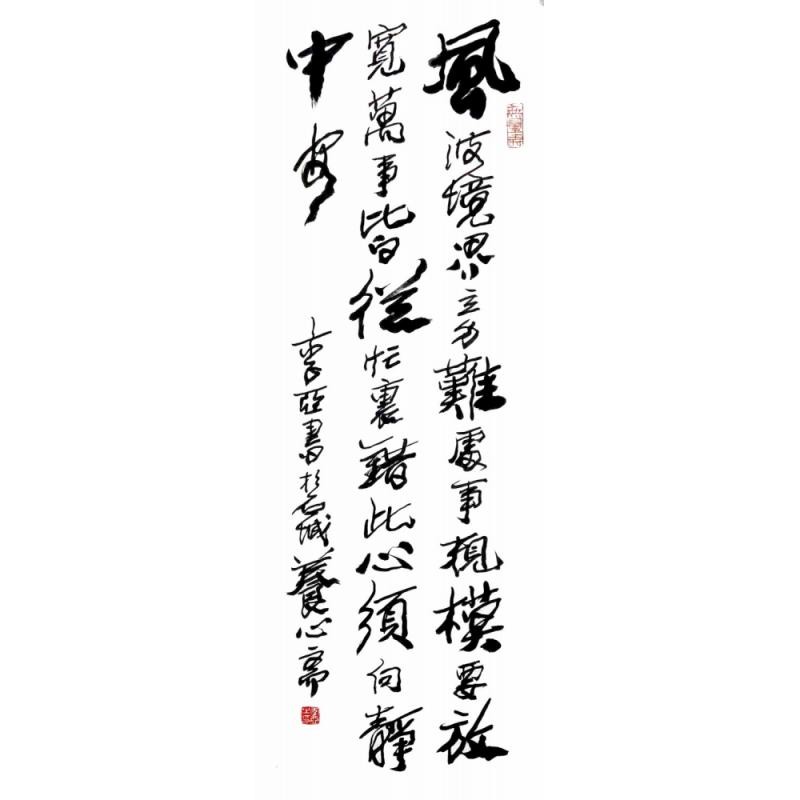 風波境界立身難處事規模要放
寬萬事皆從忙裏錯此心須向靜
中安
李亞書於石城養心齋